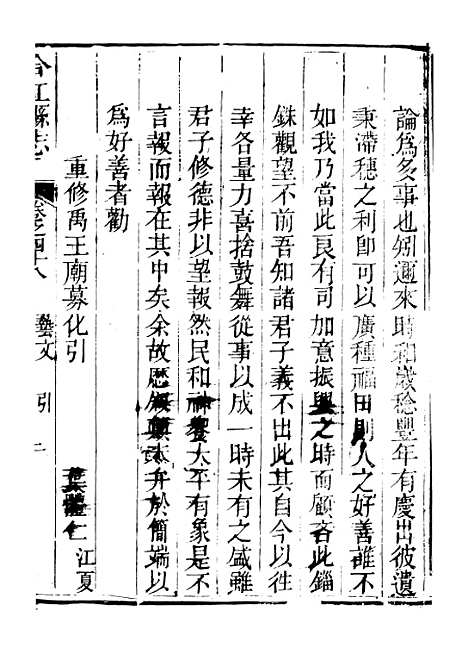 論爲多事也矧邇來時和歲稔豐年有慶出彼遺
秉滯穗之利卽可以廣種福田則人之好善誰不
如我乃當此良有司加意振興之時而顧吝此錙
銖觀望不前吾知諸君子義不出此其自今以往
幸各量力喜捨鼓舞從事以成一時未有之盛雖
君子修德非以望報然民和神饗太平有象是不
言報而報在其中矣余故歷敘顚末弁於簡端以
爲好善者勸
重修禹王廟募化引
葉體仁江夏
合江縣志
卷之四十八 藝文 引 二